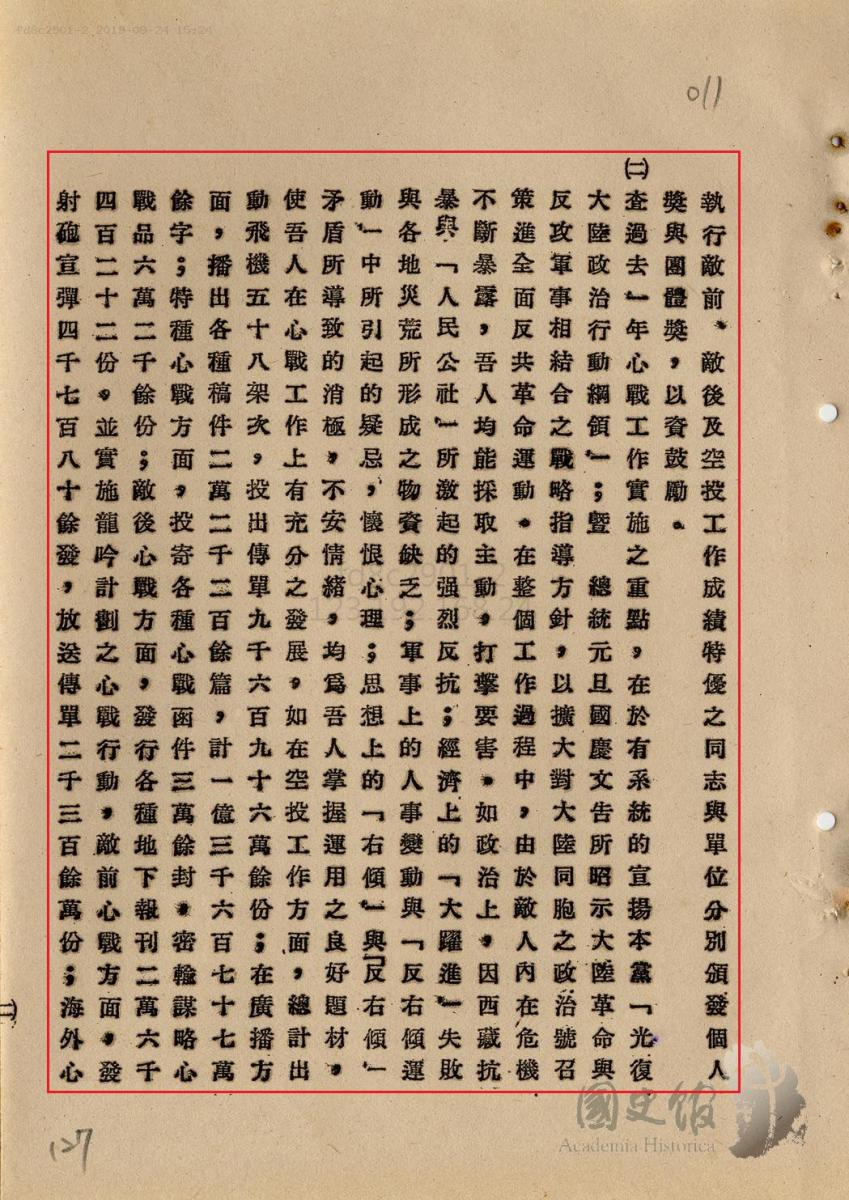 fd8c2901-2 2019-09-24 15:24
011
執行敵前、敵後及空投工作成績特優之同志與單位分別頒發個人
獎與團體獎，以資鼓勵。
㈡查過去一年心戰工作實施之重點，在於有系統的宣揚本黨「光復
大陸政治行動綱領」；暨　總統元旦國慶文告所昭示大陸革命與
反攻軍事相結合之戰略指導方針，以擴大對大陸同胞之政治號召
策進全面反共革命運動。在整個工作過程中，由於敵人內在危機
不斷暴露，吾人均能採取主動，打擊要害。如政治上，因西藏抗
暴與「人民公社」所激起的强烈反抗；經濟上的「大躍進」失敗
與各地災荒所形成之物資缺乏；軍事上的人事變動與「反右傾運
動」中所引起的疑忌，懷恨心理；思想上的「右傾」與「反右傾」
矛盾所導致的消極，不安情緒，均爲吾人掌握運用之良好題材。
使吾人在心戰工作上有充分之發展。如在空投工作方面，總計出
動飛機五十八架次，投出傳單九千六百九十六萬餘份；在廣播方
面，播出各種稿件二萬二千二百餘篇，計一億三千六百七十七萬
餘字；特種心戰方面，投寄各種心戰函件三萬餘封。密輸謀略心
戰品六萬二千餘份；敵後心戰方面，發行各種地下報刊二萬六千
四百二十二份。並實施龍吟計劃之心戰行動，敵前心戰方面，發
射砲宣彈四千七百八十餘發，放送傳單二千三百餘萬份；海外心
127
國史館
Academia Historica